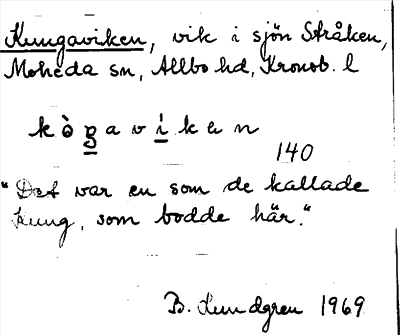 Kungaviken, vik i sjön Stråken,
Moheda sn, Allbo hd, Kronob. l
kògavíken
140
"Det var en som de kallade
Kung, som bodde här."
B. Lundgren 1969